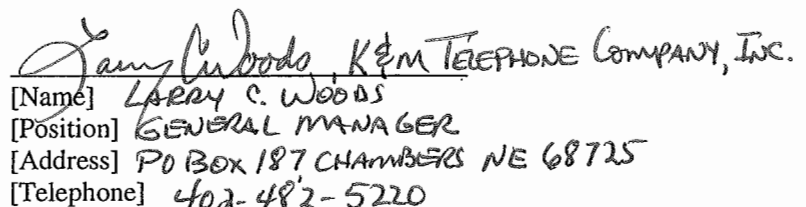 Larry C. Woods, K&M TELEPHONE COMPANY, INC.
[Name] LARRY C. WOODS
[Position] GENERAL MANAGER
[Address] PO BOX 187 CHAMBERS NE 68725
[Telephone] 402-482-5220